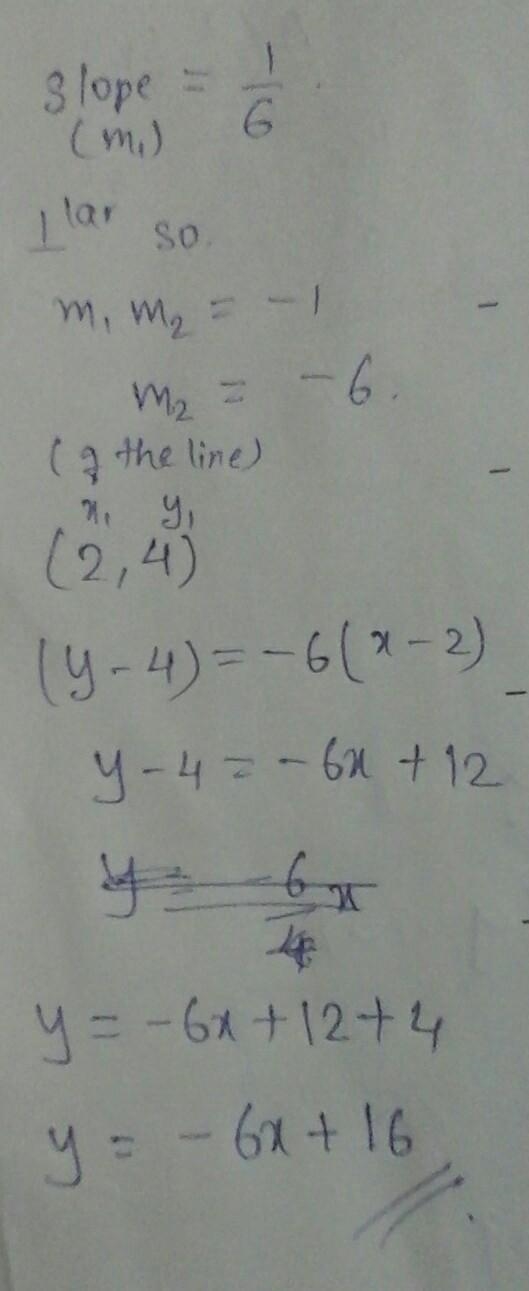 slope = 1/6.
(m₁)
⊥lar so.
m₁ m₂ = -1
m₂ = -6.
(of the line)
x₁ y₁
(2,4)
(y-4)=-6(x-2)
y-4=-6x+12
y = -6/4 x
y=-6x+12+4
y = -6x+16